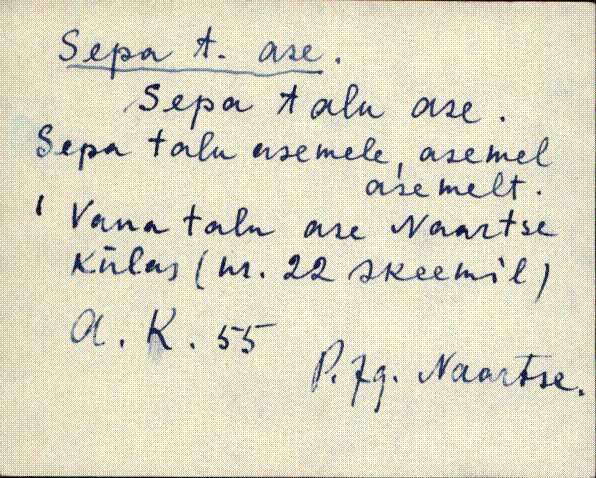 Sepa t. ase.
Sepa talu ase.
Sepa talu asemele, asemel
asemelt.
' Vana talu ase Naartse
külas (nr. 22 skeemil)
A. K. 55
P. Jg. Naartse.